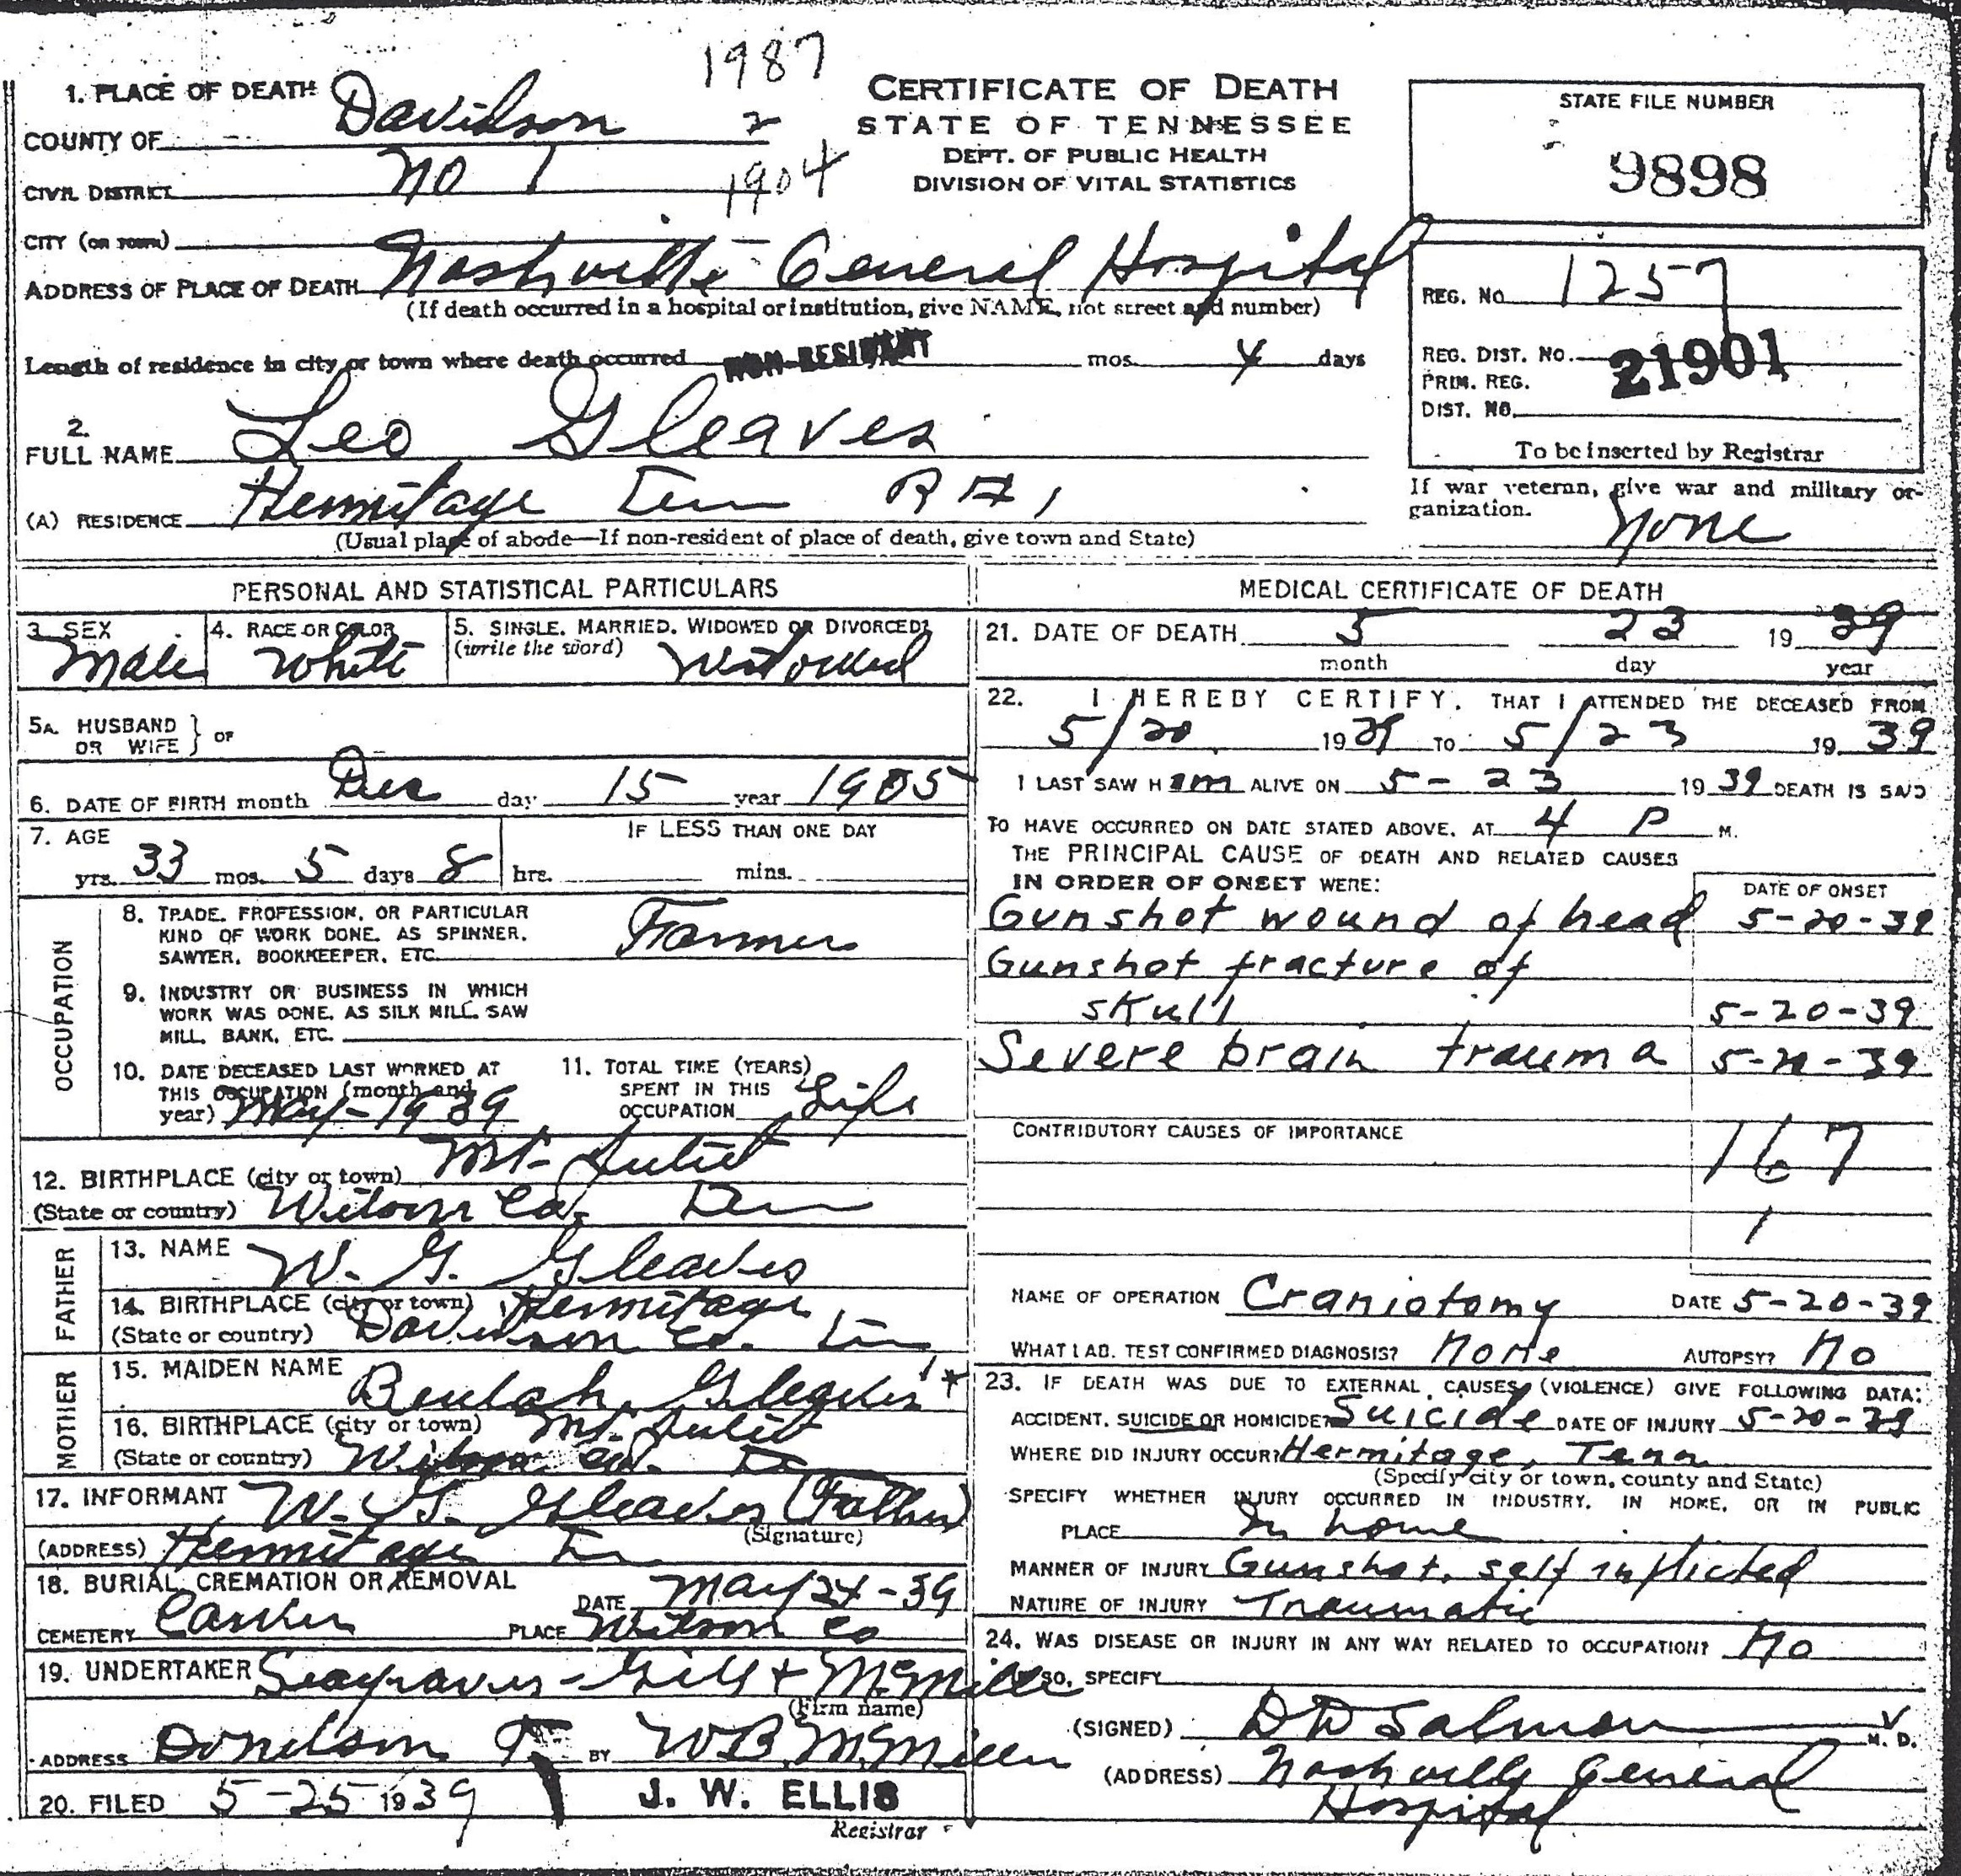 1987
1. PLACE OF DEATH
COUNTY OF Davidson 2
CIVIL DISTRICT No 1 1904
CITY (OR TOWN)
ADDRESS OF PLACE OF DEATH Nashville General Hospital
(If death occurred in a hospital or institution, give NAME, not street and number)
Length of residence in city or town where death occurred NON-RESIDENT mos. 4 days
CERTIFICATE OF DEATH
STATE OF TENNESSEE
DEPT. OF PUBLIC HEALTH
DIVISION OF VITAL STATISTICS
STATE FILE NUMBER
9898
REG. NO. 1257
REG. DIST. NO. 21901
PRIM. REG.
DIST. NO.
To be inserted by Registrar
If war veteran, give war and military or-
ganization.
None
2.
FULL NAME Leo Gleaves
(A) RESIDENCE Hermitage Tenn R #1
(Usual place of abode—If non-resident of place of death, give town and State)
PERSONAL AND STATISTICAL PARTICULARS
3. SEX Male
4. RACE OR COLOR White
5. SINGLE, MARRIED, WIDOWED OR DIVORCED?
(write the word) Widowed
5A. HUSBAND
OR WIFE } OF
6. DATE OF BIRTH month Dec day 15 year 1905
7. AGE IF LESS THAN ONE DAY
yrs. 33 mos. 5 days 8 hrs. mins.
OCCUPATION
8. TRADE, PROFESSION, OR PARTICULAR
KIND OF WORK DONE, AS SPINNER,
SAWYER, BOOKKEEPER, ETC. Farmer
9. INDUSTRY OR BUSINESS IN WHICH
WORK WAS DONE, AS SILK MILL, SAW
MILL, BANK, ETC.
10. DATE DECEASED LAST WORKED AT
THIS OCCUPATION (month and
year) May-1939
11. TOTAL TIME (YEARS)
SPENT IN THIS
OCCUPATION Life
12. BIRTHPLACE (city or town) Mt. Juliet
(State or country) Wilson Co. Ten
FATHER
13. NAME W. G. Gleaves
14. BIRTHPLACE (city or town) Hermitage
(State or country) Davidson Co. Tn
MOTHER
15. MAIDEN NAME Beulah Gleaves *
16. BIRTHPLACE (city or town) Mt. Juliet
(State or country) Wilson Co. Tn
17. INFORMANT W. G. Gleaves (Father)
(Signature)
(ADDRESS) Hermitage Tn
18. BURIAL, CREMATION OR REMOVAL DATE May 24-39
CEMETERY PLACE Wilson Co
19. UNDERTAKER Seagraves-Gill & McMillen
(Firm name)
ADDRESS Donelson T BY W B McMillen
20. FILED 5-25 1939 J. W. ELLIS
Registrar
MEDICAL CERTIFICATE OF DEATH
21. DATE OF DEATH 5 23 19 39
month day year
22. I HEREBY CERTIFY, THAT I ATTENDED THE DECEASED FROM
5/20 1939 TO 5/23 19 39
I LAST SAW H im ALIVE ON 5-23 19 39 DEATH IS SAID
TO HAVE OCCURRED ON DATE STATED ABOVE, AT 4 P M.
THE PRINCIPAL CAUSE OF DEATH AND RELATED CAUSES
IN ORDER OF ONSET WERE: DATE OF ONSET
Gunshot wound of head 5-20-39
Gunshot fracture of
skull 5-20-39
Severe brain trauma 5-20-39
CONTRIBUTORY CAUSES OF IMPORTANCE
167
1
NAME OF OPERATION Craniotomy DATE 5-20-39
WHAT LAB. TEST CONFIRMED DIAGNOSIS? None AUTOPSY? No
23. IF DEATH WAS DUE TO EXTERNAL CAUSES (VIOLENCE) GIVE FOLLOWING DATA:
ACCIDENT, SUICIDE OR HOMICIDE? Suicide DATE OF INJURY 5-20-39
WHERE DID INJURY OCCUR? Hermitage, Tenn
(Specify city or town, county and State)
SPECIFY WHETHER INJURY OCCURRED IN INDUSTRY, IN HOME, OR IN PUBLIC
PLACE In home
MANNER OF INJURY Gunshot, self inflicted
NATURE OF INJURY Traumatic
24. WAS DISEASE OR INJURY IN ANY WAY RELATED TO OCCUPATION? No
SO, SPECIFY
(SIGNED) D D Salmon M. D.
(ADDRESS) Nashville General
Hospital